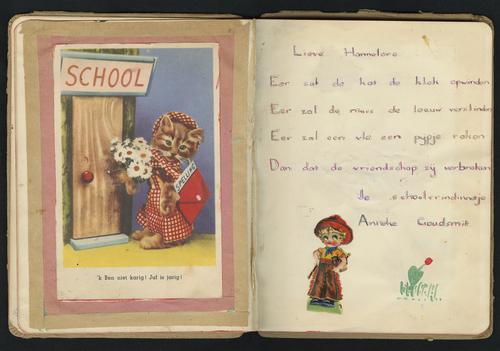 SCHOOL
SPELLING
'k Ben niet karig! Juf is jarig!
Lieve Hannelore
Eer zal de kat de klok opwinden
Eer zal de muis de leeuw verslinden
Eer zal een vlo een pijpje roken
Dan dat de vriendschap zij verbroken
Je schoolvriendinnetje
Anneke Goudsmit